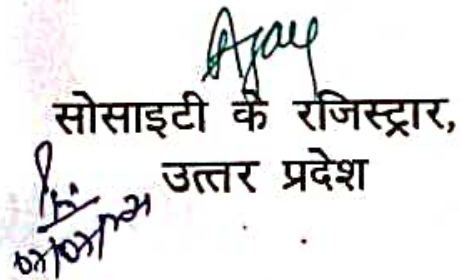 Ajay
सोसाइटी के रजिस्ट्रार,
उत्तर प्रदेश